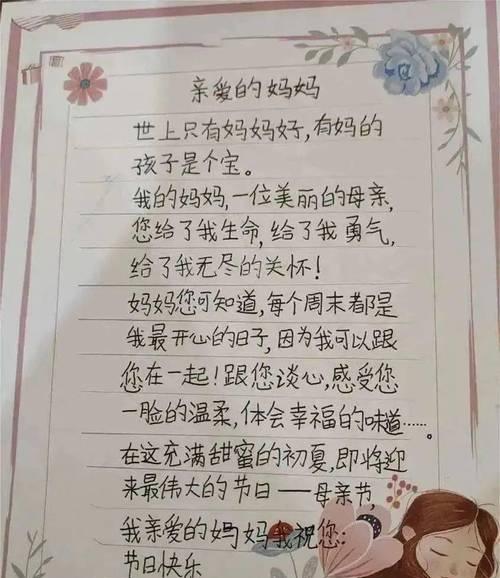 亲爱的妈妈
世上只有妈妈好,有妈的
孩子是个宝。
我的妈妈,一位美丽的母亲,
您给了我生命,给了我勇气,
给了我无尽的关怀!
妈妈您可知道,每个周末都是
我最开心的日子,因为我可以跟
您在一起!跟您谈心,感受您
一脸的温柔,体会幸福的味道……。
在这充满甜蜜的初夏,即将迎
来最伟大的节日——母亲节,
我亲爱的妈妈我祝您:
节日快乐